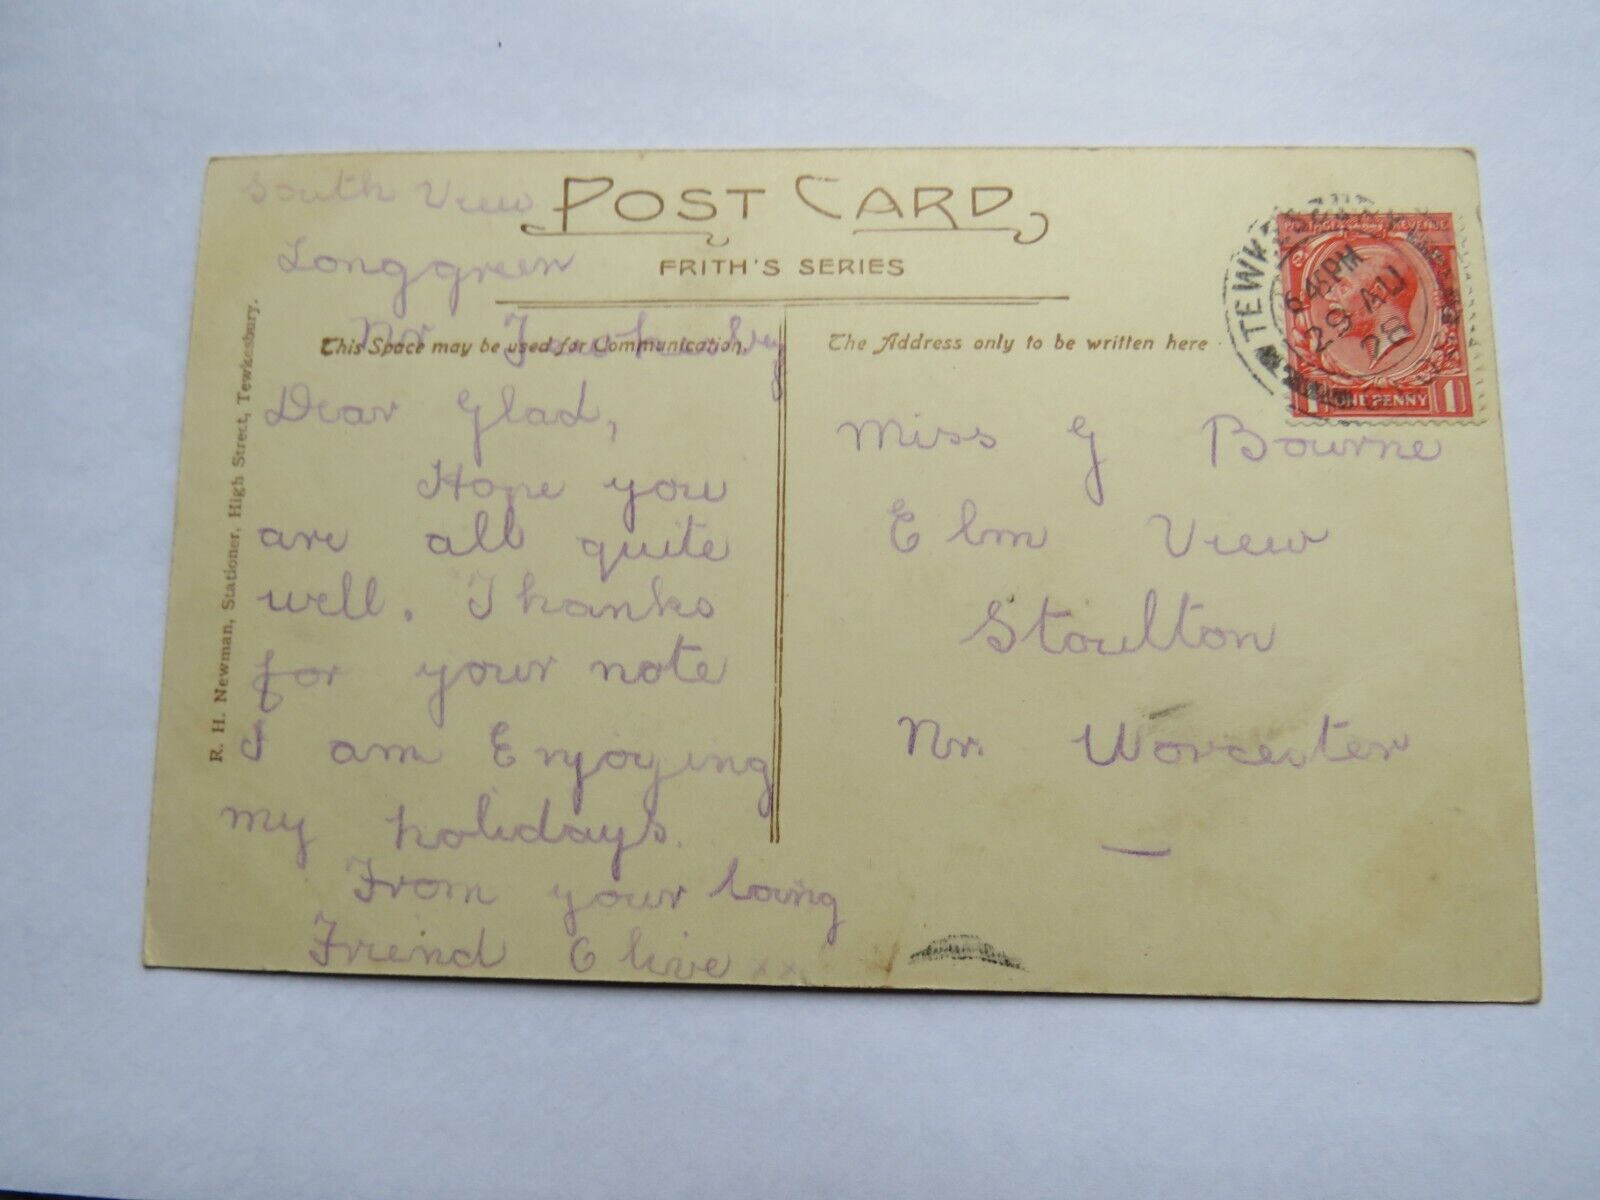 POST CARD
FRITH'S SERIES
R. H. Newman, Stationer, High Street, Tewkesbury.
This Space may be used for Communication.
The Address only to be written here
South View
Longgreen
Nr Tewkesbury
Dear Glad,
Hope you
are all quite
well. Thanks
for your note
I am Enjoying
my holidays.
From your loving
Friend Olive xx
Miss G Bourne
Elm View
Stoulton
Nr. Worcester
TEWK
6 45 PM
29 AU
28
1 ONE PENNY 1